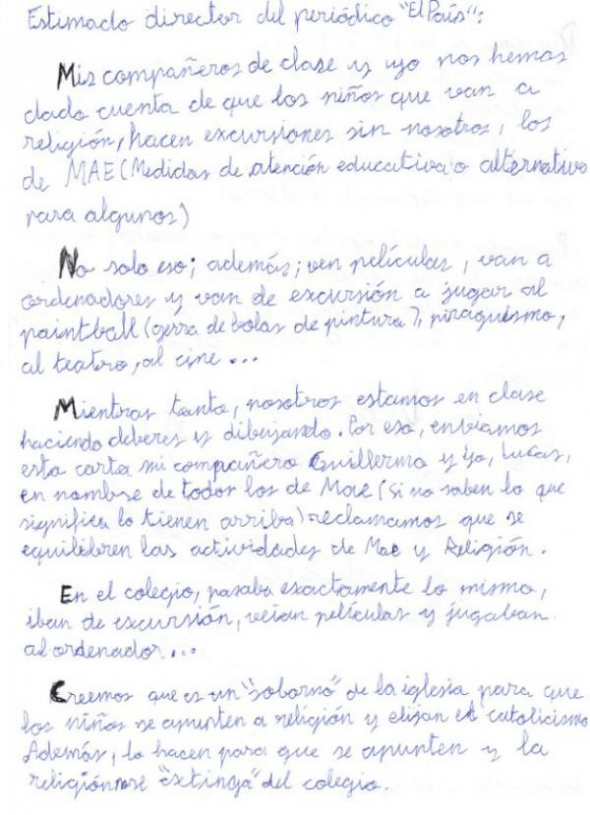 Estimado director del periódico "El País":
Mis compañeros de clase y yo nos hemos
dado cuenta de que los niños que van a
religión, hacen excursiones sin nosotros, los
de MAE (Medidas de atención educativa o alternativa
para algunos)
No solo eso; además; ven películas, van a
ordenadores y van de excursión a jugar al
paintball (gerra de bolas de pintura), piraguismo,
al teatro, al cine ...
Mientras tanto, nosotros estamos en clase
haciendo deberes y dibujando. Por eso, enviamos
esta carta mi compañero Guillermo y yo, Lucas,
en nombre de todos los de Mae (si no saben lo que
significa lo tienen arriba) reclamamos que se
equilibren las actividades de Mae y Religión.
En el colegio, pasaba exactamente lo mismo,
iban de excursión, veían películas y jugaban
al ordenador ...
Creemos que es un "soborno" de la iglesia para que
los niños se apunten a religión y elijan el catolicismo
Además, lo hacen para que se apunten y la
religión no se "extinga" del colegio.